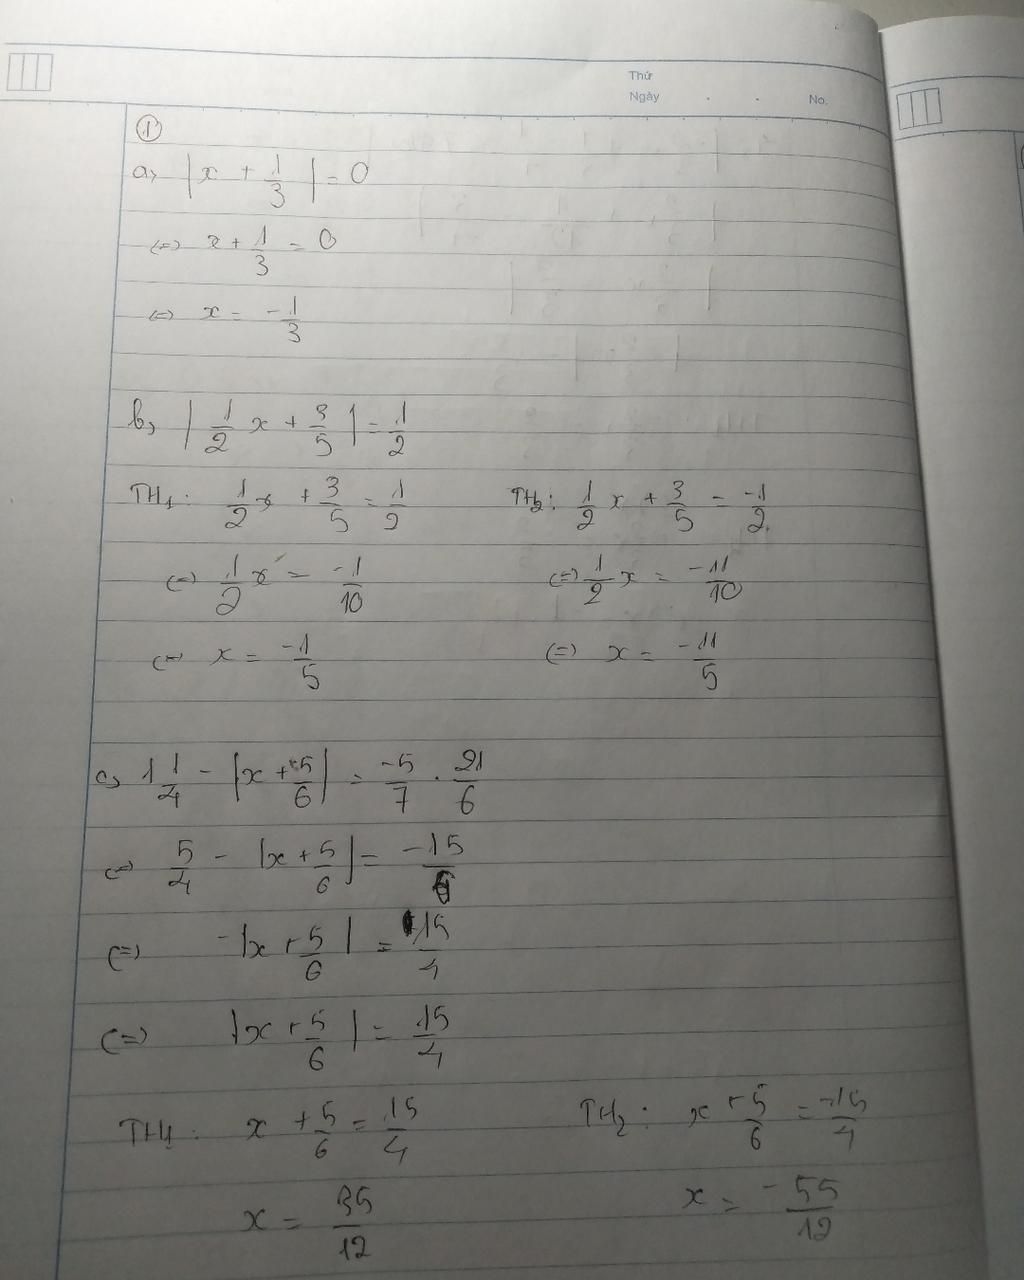 Thứ
Ngày . . No.
①
a, |x + 1/3| = 0
(=) x + 1/3 = 0
(=) x = -1/3
b, |1/2 x + 3/5| = 1/2
TH1: 1/2 x + 3/5 = 1/2 TH2: 1/2 x + 3/5 = -1/2
(=) 1/2 x = -1/10 (=) 1/2 x = -11/10
(=) x = -1/5 (=) x = -11/5
c, 1 1/4 - |x + 5/6| = -5/7 . 21/6
(=) 5/4 - |x + 5/6| = -15/6
(=) -|x + 5/6| = 15/4
(=) |x + 5/6| = 15/4
TH1: x + 5/6 = 15/4 TH2: x + 5/6 = -15/4
x = 35/12 x = -55/12